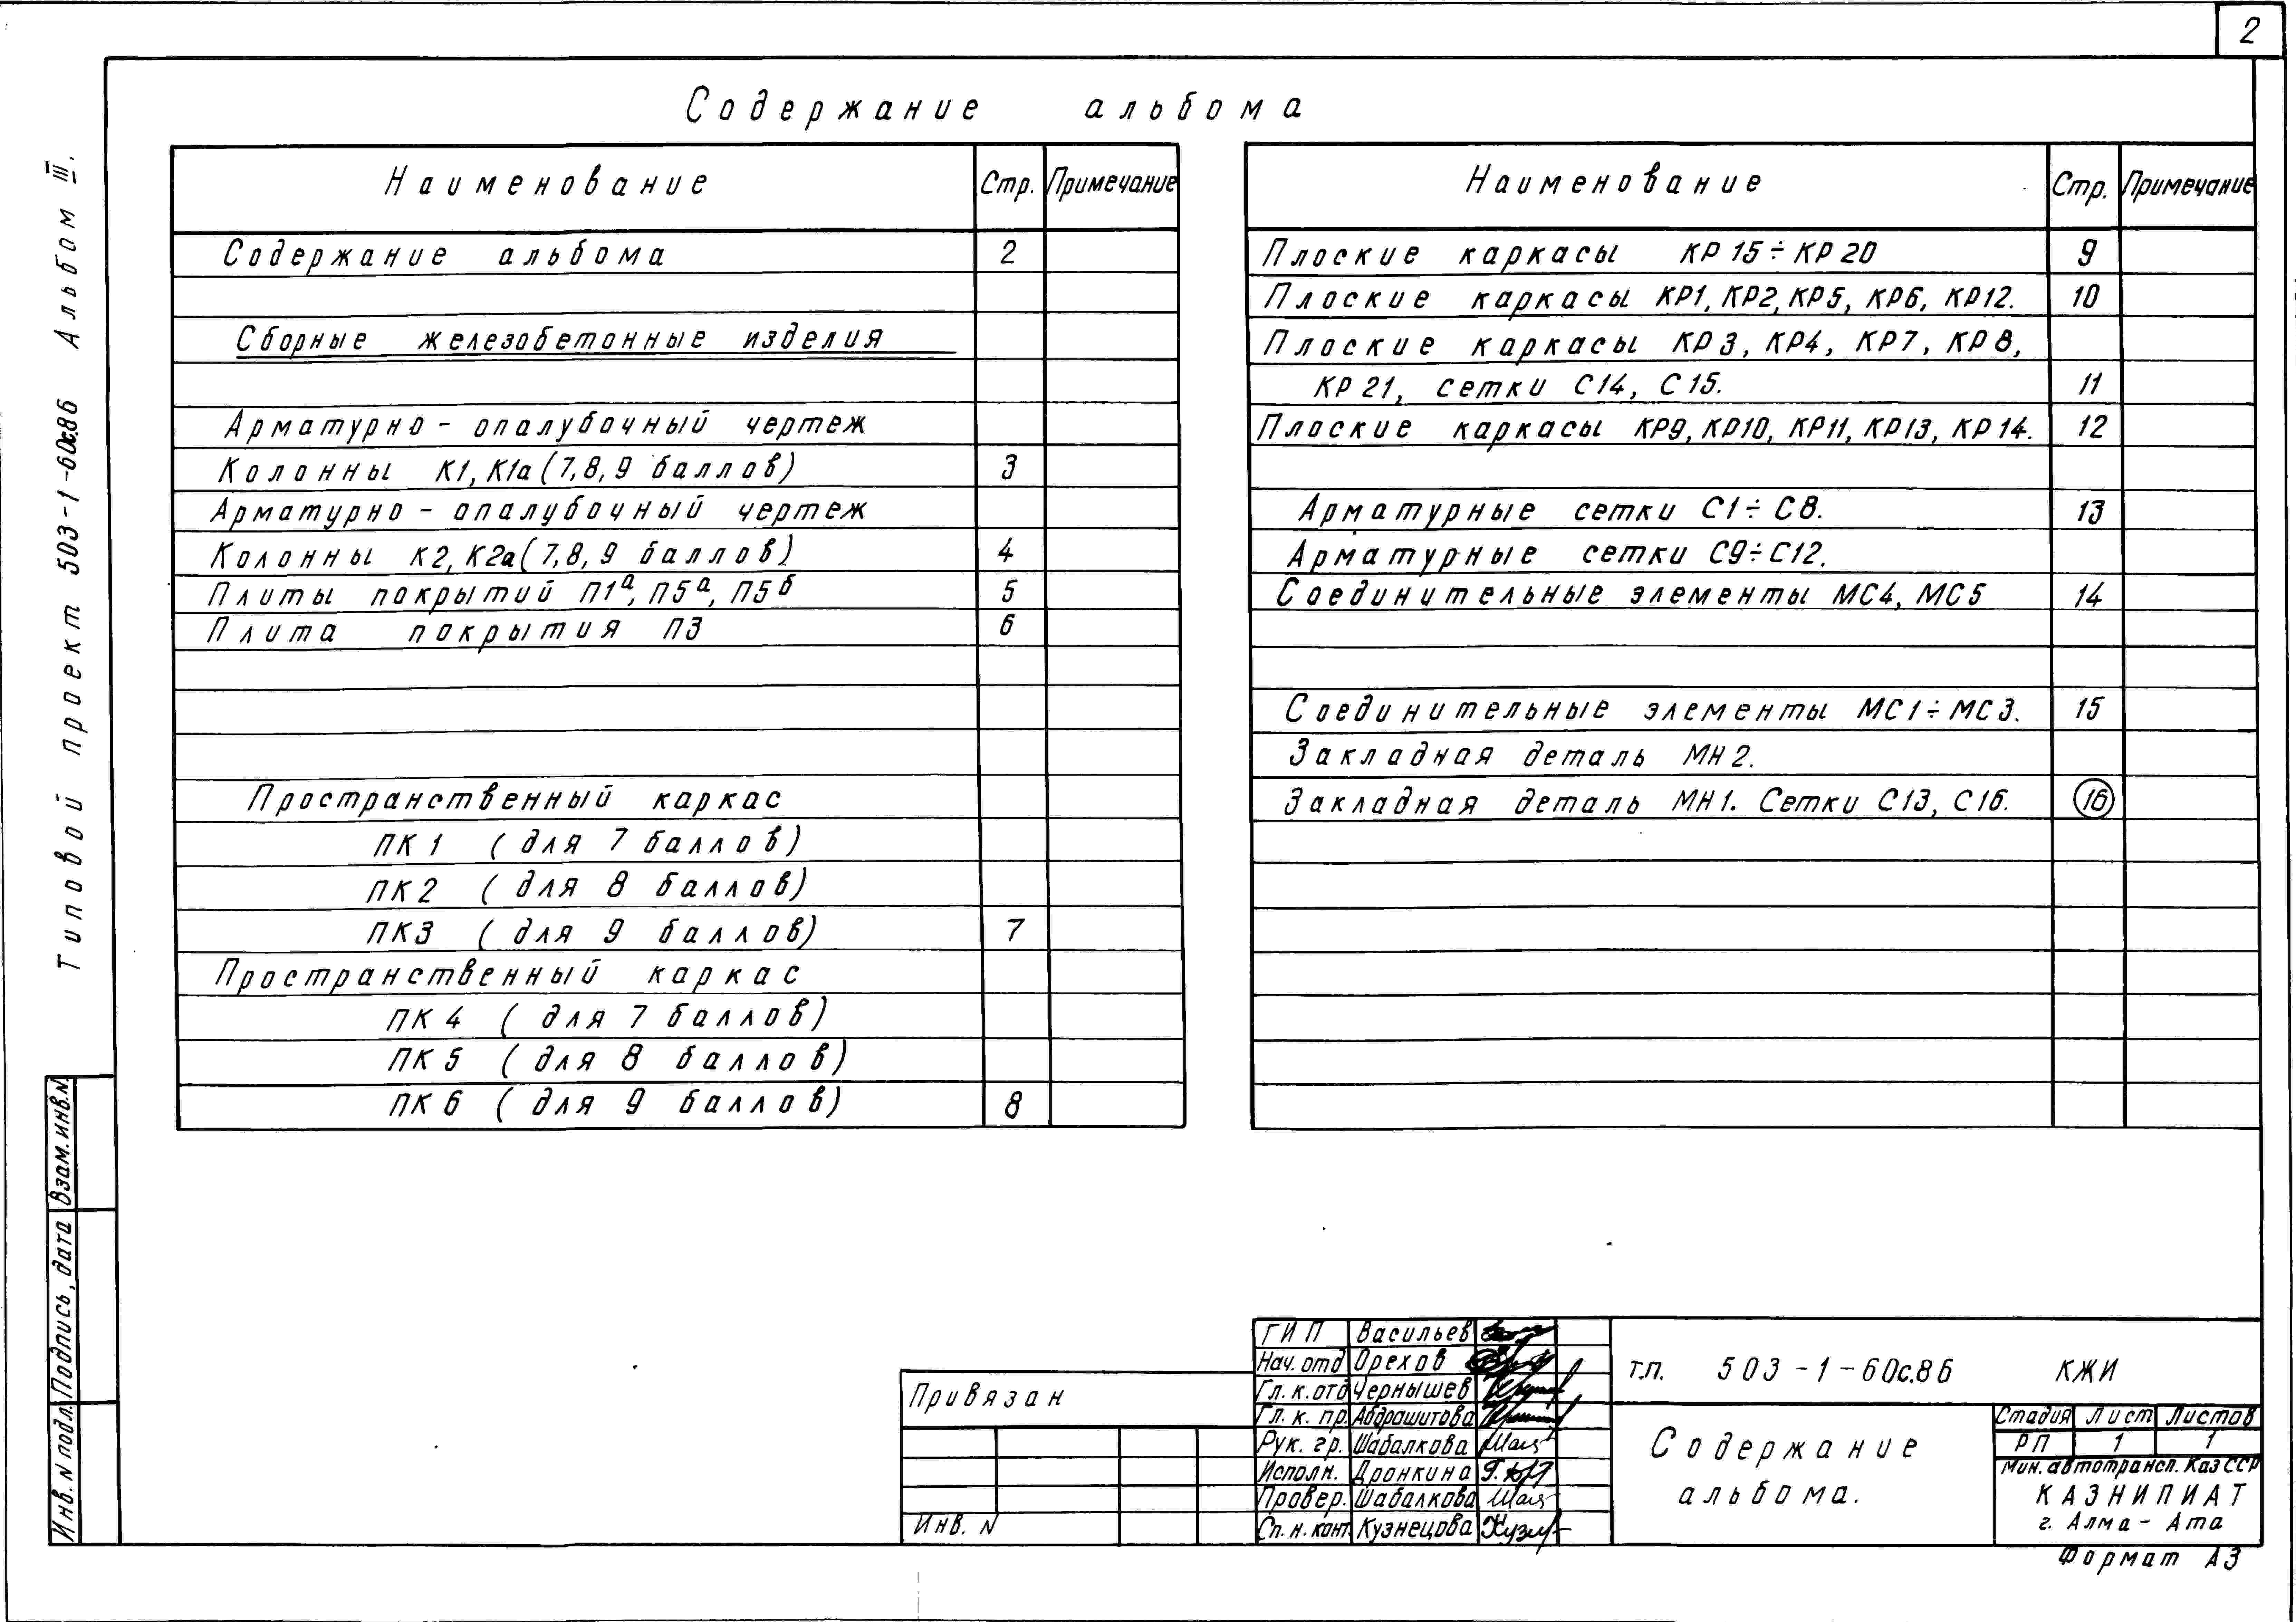 2
Содержание альбома
Типовой проект 503-1-60с.86 Альбом III.
Наименование Стр. Примечание
Содержание альбома 2
Сборные железобетонные изделия
Арматурно - опалубочный чертеж
Колонны К1, К1а (7, 8, 9 баллов) 3
Арматурно - опалубочный чертеж
Колонны К2, К2а (7, 8, 9 баллов) 4
Плиты покрытий П1а, П5а, П5б 5
Плита покрытия П3 6
Пространственный каркас
ПК 1 (для 7 баллов)
ПК 2 (для 8 баллов)
ПК3 (для 9 баллов) 7
Пространственный каркас
ПК 4 (для 7 баллов)
ПК 5 (для 8 баллов)
ПК 6 (для 9 баллов) 8
Наименование Стр. Примечание
Плоские каркасы КР 15 ÷ КР 20 9
Плоские каркасы КР1, КР2, КР5, КР6, КР12. 10
Плоские каркасы КР 3, КР4, КР7, КР 8,
КР 21, сетки С14, С 15. 11
Плоские каркасы КР9, КР10, КР11, КР13, КР 14. 12
Арматурные сетки С1 ÷ С8. 13
Арматурные сетки С9 ÷ С12.
Соединительные элементы МС4, МС5 14
Соединительные элементы МС1 ÷ МС3. 15
Закладная деталь МН 2.
Закладная деталь МН1. Сетки С13, С16. 16
Инв. N подл. Подпись, дата Взам. инв. N
Привязан
Инв. N
ГИП Васильев
Нач. отд Орехов
Гл. к. отд Чернышев
Гл. к. пр. Абдрашитова
Рук. гр. Шабалкова
Исполн. Дронкина
Провер. Шабалкова
Сп. н. конт. Кузнецова
т.п. 503-1-60с.86 КЖИ
Содержание
альбома.
Стадия Лист Листов
РП 1 1
Мин. автотрансп. Каз ССР
КАЗНИПИАТ
г. Алма - Ата
Формат А3